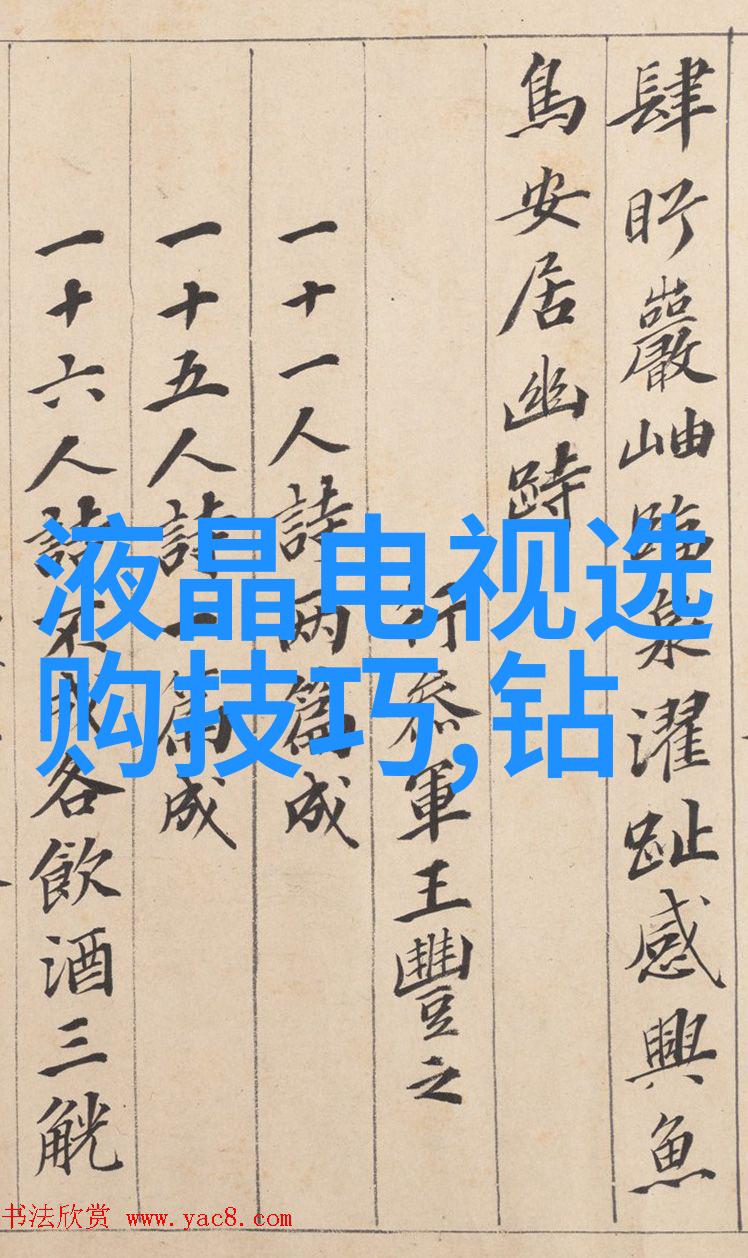 肆盻巖岫臨泉濯趾感興魚
鳥安居幽跱
行參軍王豐之
一十一人詩兩篇成
一十五人詩一篇成
一十六人詩不成各飲酒三觥
液晶电视选
购技巧,钻
书法欣赏 www.yac8.com